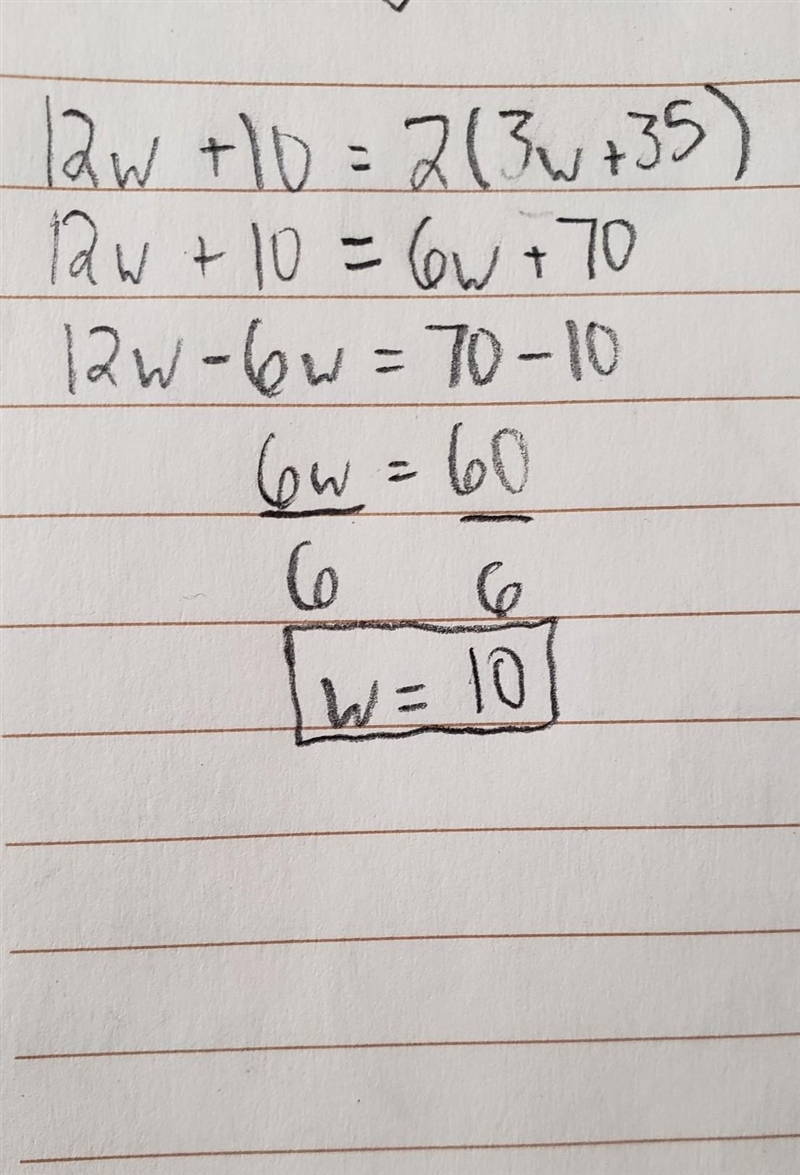 12w + 10 = 2(3w + 35)
12w + 10 = 6w + 70
12w - 6w = 70 - 10
6w = 60
6 6
w = 10